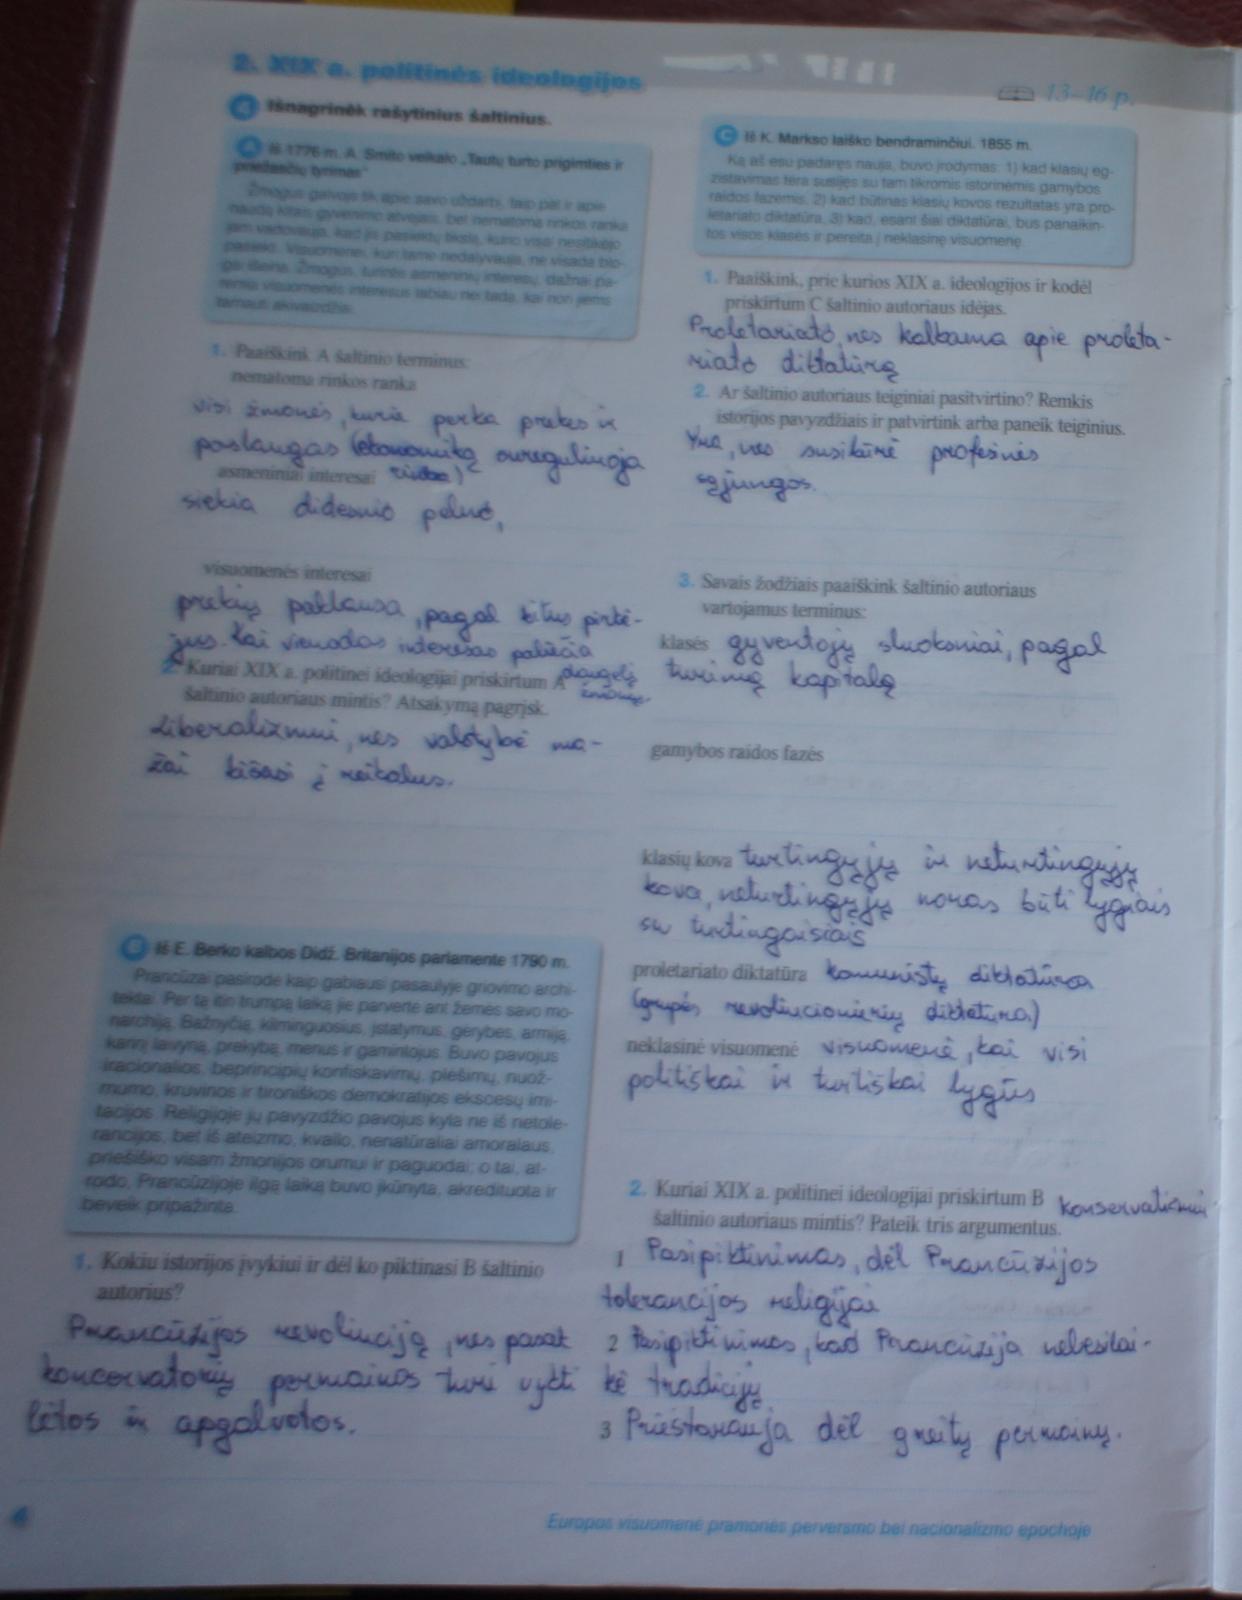 2. XIX a. politinės ideologijos
13–16 p.
4 Išnagrinėk rašytinius šaltinius.
A Iš 1776 m. A. Smito veikalo „Tautų turto prigimties ir
priežasčių tyrimas“
Žmogus galvoja tik apie savo uždarbį, taip pat ir apie
naudą kitais gyvenimo atvejais, bet nematoma rinkos ranka
jam vadovauja, kad jis pasiektų tikslą, kurio visai nesitikėjo
pasiekti. Visuomenei, kuri tame nedalyvauja, ne visada blo-
gai išeina. Žmogus, turintis asmeninių interesų, dažnai pa-
remia visuomenės interesus labiau nei tada, kai nori jiems
tarnauti akivaizdžiai.
1. Paaiškink A šaltinio terminus:
nematoma rinkos ranka
visi žmonės, kurie perka prekes ir
paslaugas (ekonomiką sureguliuoja
asmeniniai interesai rinka)
siekia didesnio pelno,
visuomenės interesai
prekių paklausa, pagal kitus pirkė-
jus. Kai vienodas interesas paliečia
daugelį
žmonių.
2. Kuriai XIX a. politinei ideologijai priskirtum A
šaltinio autoriaus mintis? Atsakymą pagrįsk.
Liberalizmui, nes valstybė ma-
žai kišasi į reikalus.
B Iš E. Berko kalbos Didž. Britanijos parlamente 1790 m.
Prancūzai pasirodė kaip gabiausi pasaulyje griovimo archi-
tektai. Per tą itin trumpą laiką jie parvertė ant žemės savo mo-
narchiją, Bažnyčią, kilminguosius, įstatymus, gėrybes, armiją,
karinį laivyną, prekybą, menus ir gamintojus. Buvo pavojus
iracionalios, beprincipių konfiskavimų, plėšimų, nuož-
mumo, kruvinos ir tironiškos demokratijos ekscesų imi-
tacijos. Religijoje jų pavyzdžio pavojus kyla ne iš netole-
rancijos, bet iš ateizmo, kvailo, nenatūraliai amoralaus,
priešiško visam žmonijos orumui ir paguodai; o tai, at-
rodo, Prancūzijoje ilgą laiką buvo įkūnyta, akredituota ir
beveik pripažinta.
1. Kokiu istorijos įvykiui ir dėl ko piktinasi B šaltinio
autorius?
Prancūzijos revoliuciją, nes pasak
koncervatorių permainos turi vykti
lėtos ir apgalvotos.
C Iš K. Markso laiško bendraminčiui. 1855 m.
Ką aš esu padaręs nauja, buvo įrodymas: 1) kad klasių eg-
zistavimas tėra susijęs su tam tikromis istorinėmis gamybos
raidos fazėmis, 2) kad būtinas klasių kovos rezultatas yra pro-
letariato diktatūra, 3) kad, esant šiai diktatūrai, bus panaikin-
tos visos klasės ir pereita į neklasinę visuomenę.
1. Paaiškink, prie kurios XIX a. ideologijos ir kodėl
priskirtum C šaltinio autoriaus idėjas.
Proletariato, nes kalbama apie proleta-
riato diktatūrą
2. Ar šaltinio autoriaus teiginiai pasitvirtino? Remkis
istorijos pavyzdžiais ir patvirtink arba paneik teiginius.
Yra, nes susikūrė profesinės
sąjungos.
3. Savais žodžiais paaiškink šaltinio autoriaus
vartojamus terminus:
klasės gyventojų sluoksniai, pagal
turimą kapitalą
gamybos raidos fazės
klasių kova turtingųjų ir neturtingųjų
kova, neturtingųjų noras būti lygiais
su turtingaisiais
proletariato diktatūra komunistų diktatūra
(grupės revoliucionierių diktatūra)
neklasinė visuomenė visuomenė, kai visi
politiškai ir turtiškai lygūs
2. Kuriai XIX a. politinei ideologijai priskirtum B konservatizmui
šaltinio autoriaus mintis? Pateik tris argumentus.
1 Pasipiktinimas, dėl Prancūzijos
tolerancijos religijai
2 Pasipiktinimas, kad Prancūzija nebesilai-
kė tradicijų
3 Priėštarauja dėl greitų permainų.
4
Europos visuomenė pramonės perversmo bei nacionalizmo epochoje